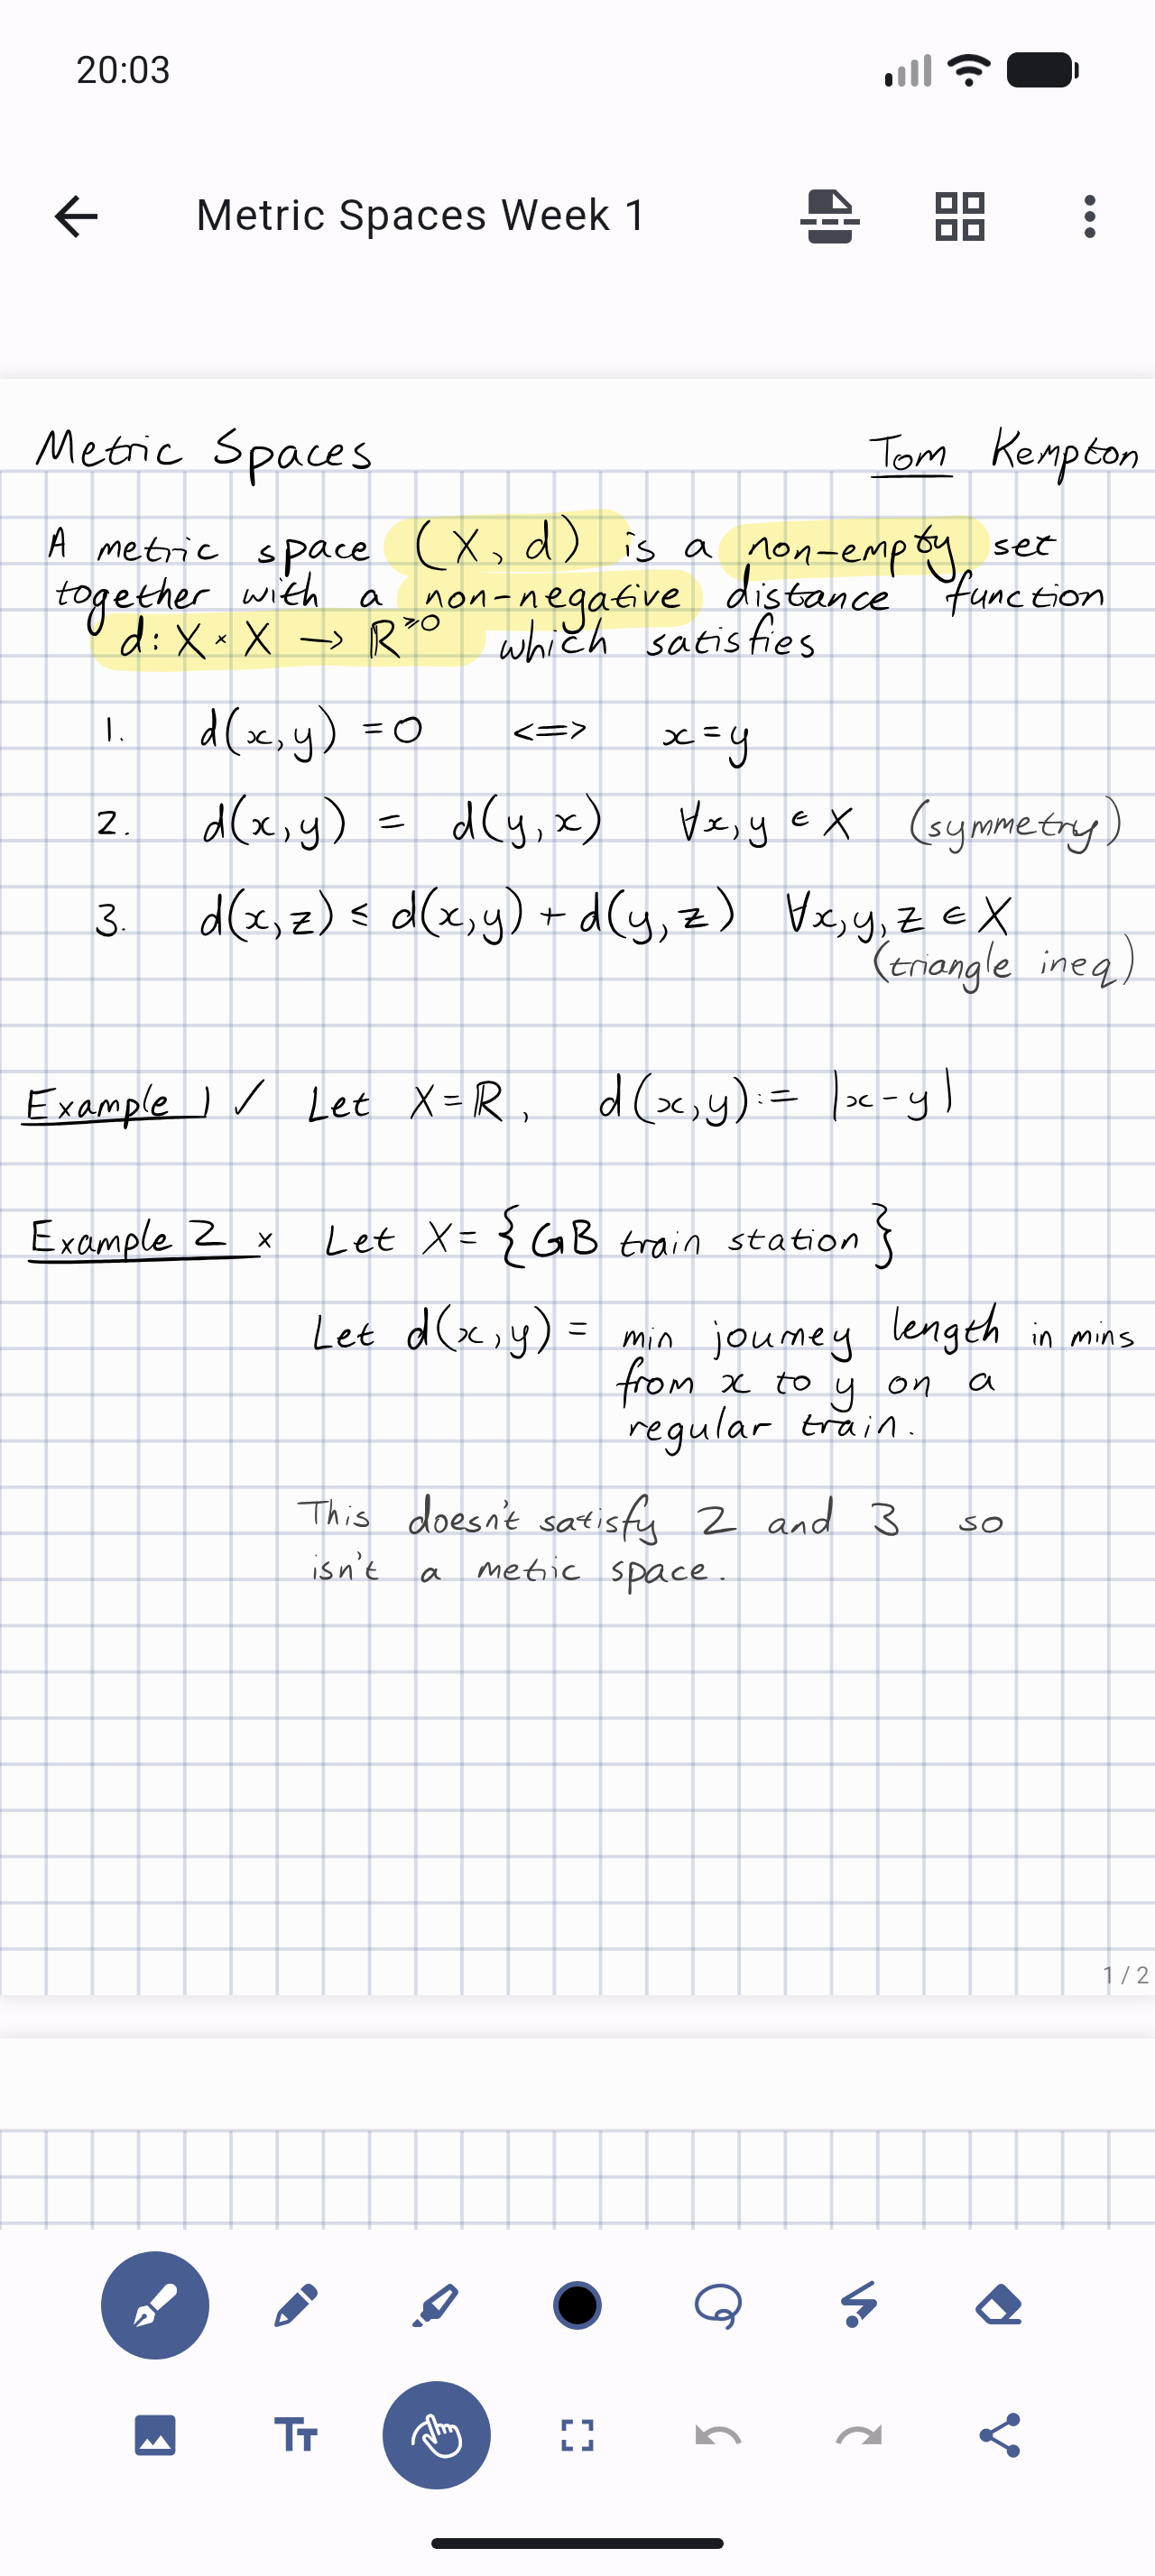 20:03
Metric Spaces Week 1
Metric Spaces Tom Kempton
A metric space (X, d) is a non-empty set
together with a non-negative distance function
d: X × X → ℝ^≥0 which satisfies
1. d(x,y) = 0 <=> x = y
2. d(x,y) = d(y,x) ∀x,y ∈ X (symmetry)
3. d(x,z) ≤ d(x,y) + d(y,z) ∀x,y,z ∈ X
(triangle ineq)
Example 1 ✓ Let X = ℝ, d(x,y) := |x - y|
Example 2 × Let X = {GB train station}
Let d(x,y) = min journey length in mins
from x to y on a
regular train.
This doesn't satisfy 2 and 3 so
isn't a metric space.
1 / 2